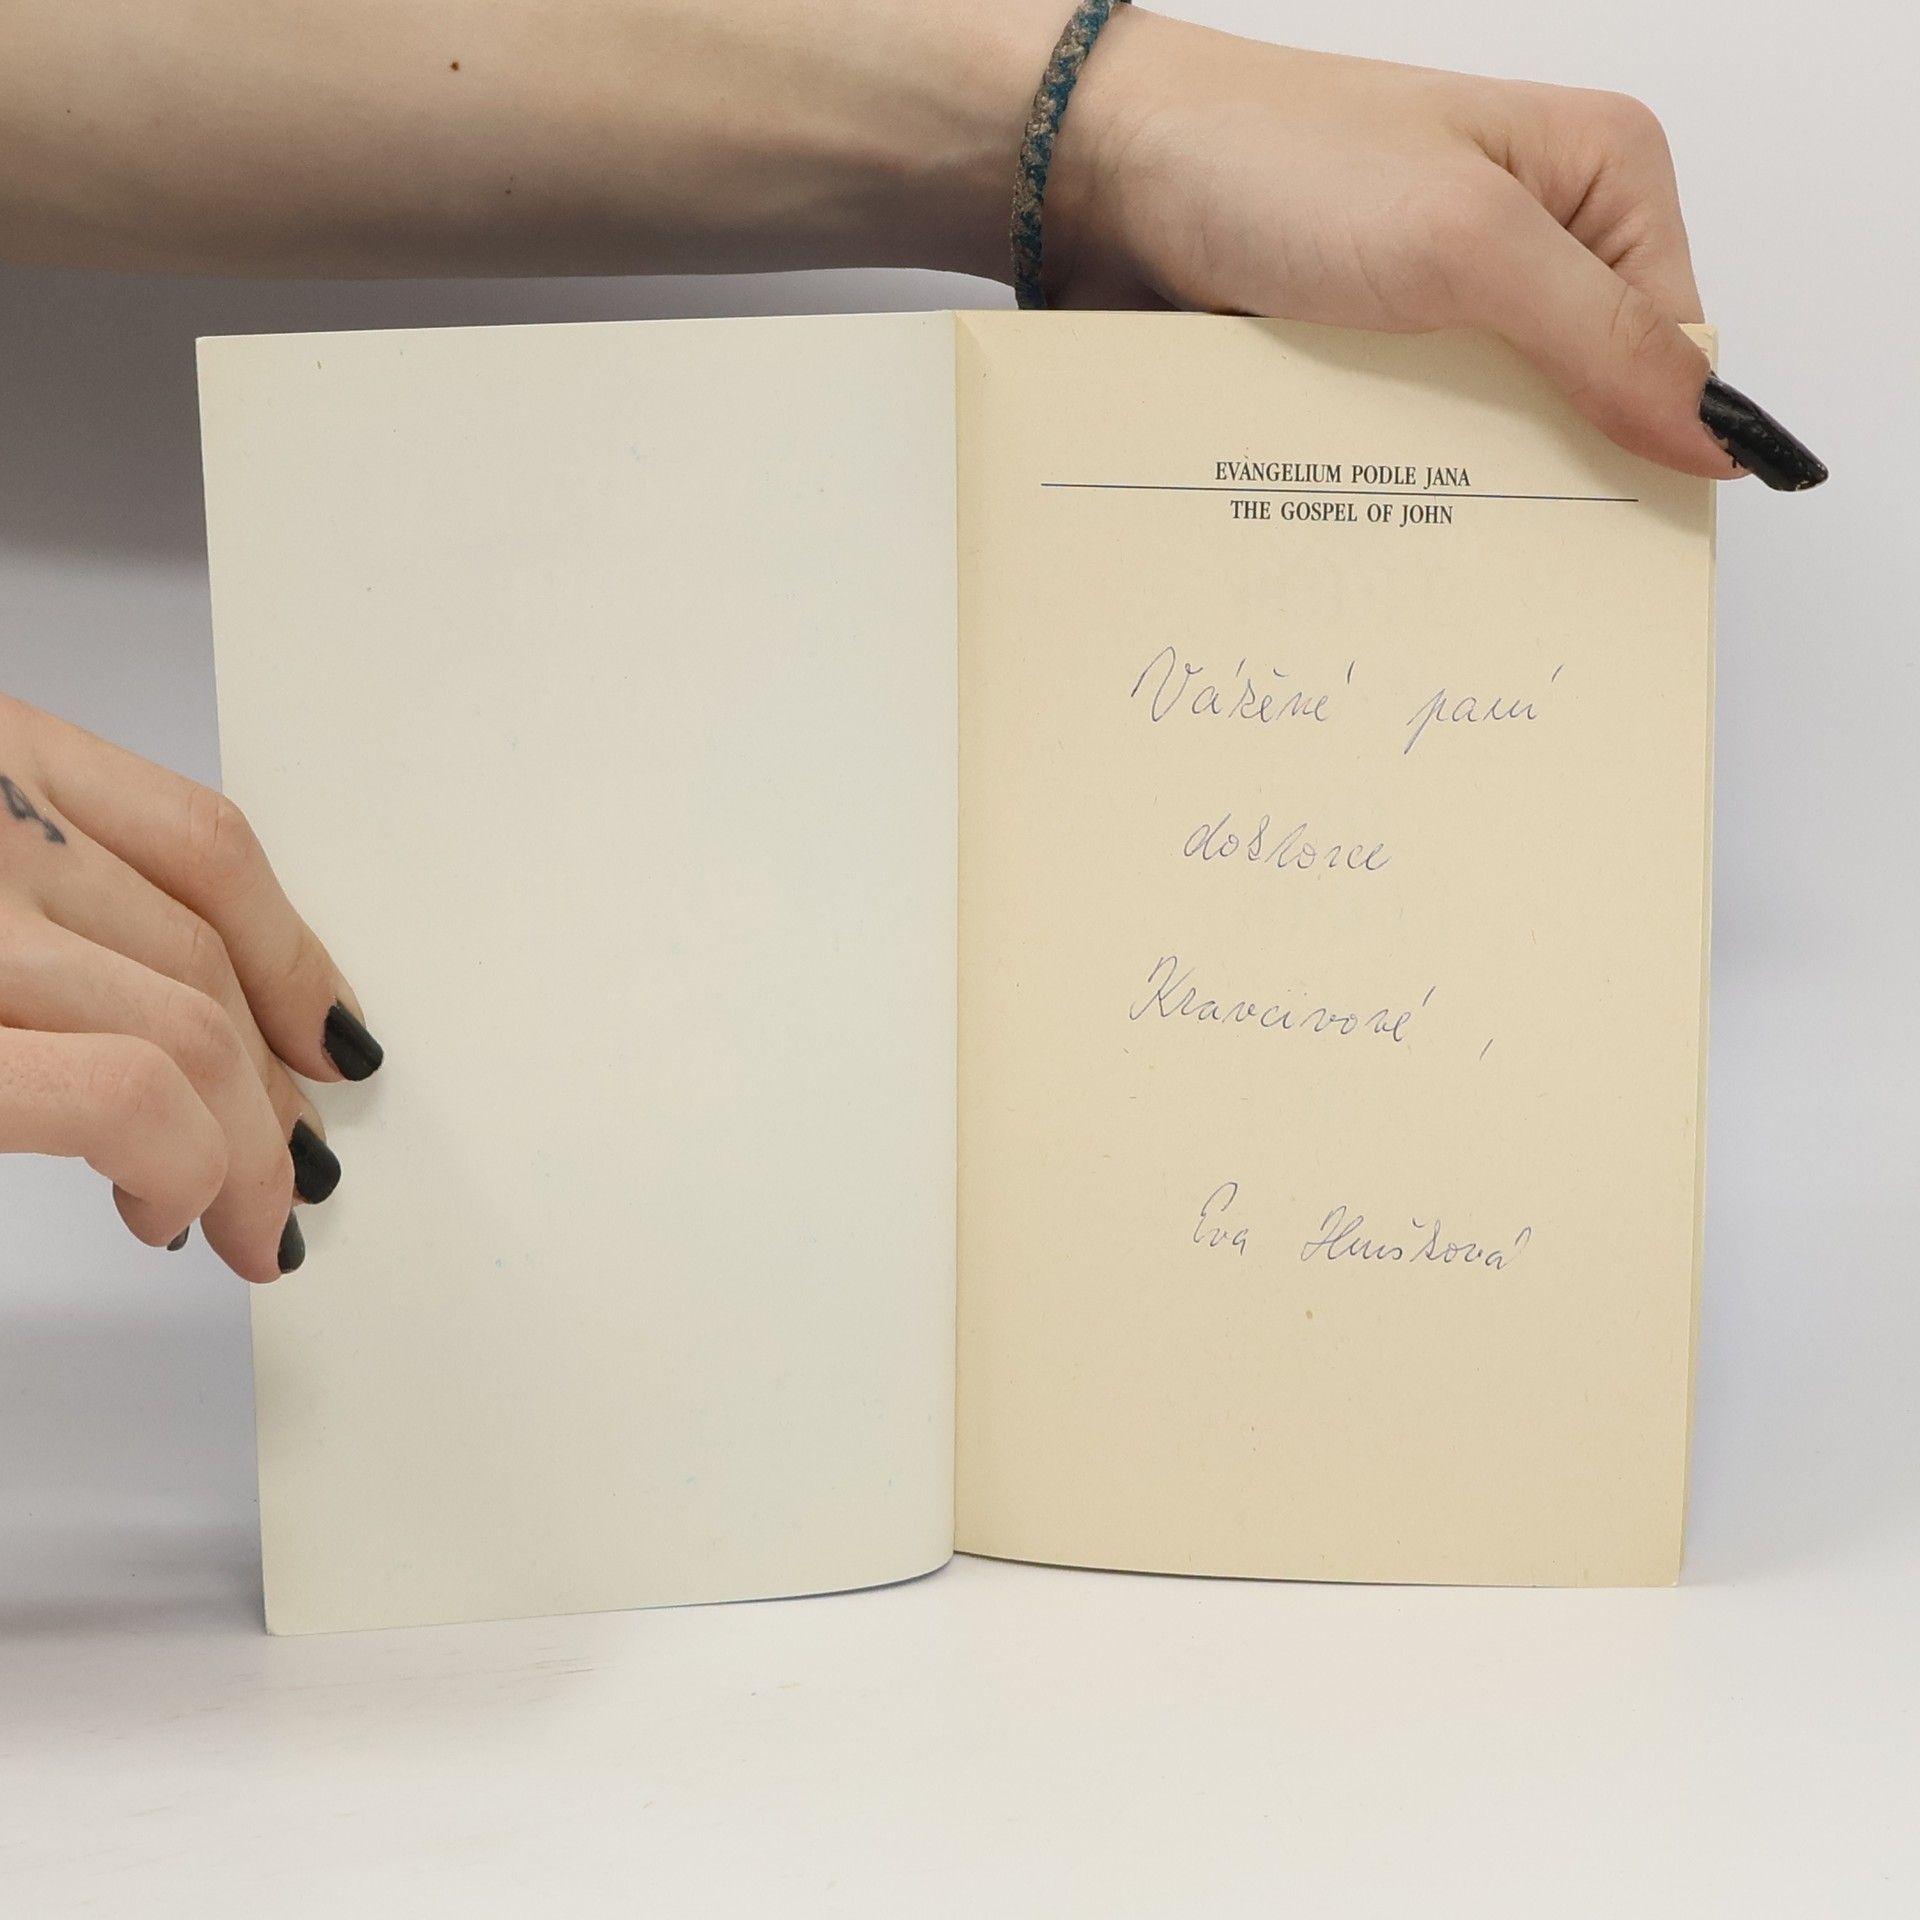 EVANGELIUM PODLE JANA
THE GOSPEL OF JOHN
Vážené paní
doktorce
Kravcivové ,
Eva Hnušková